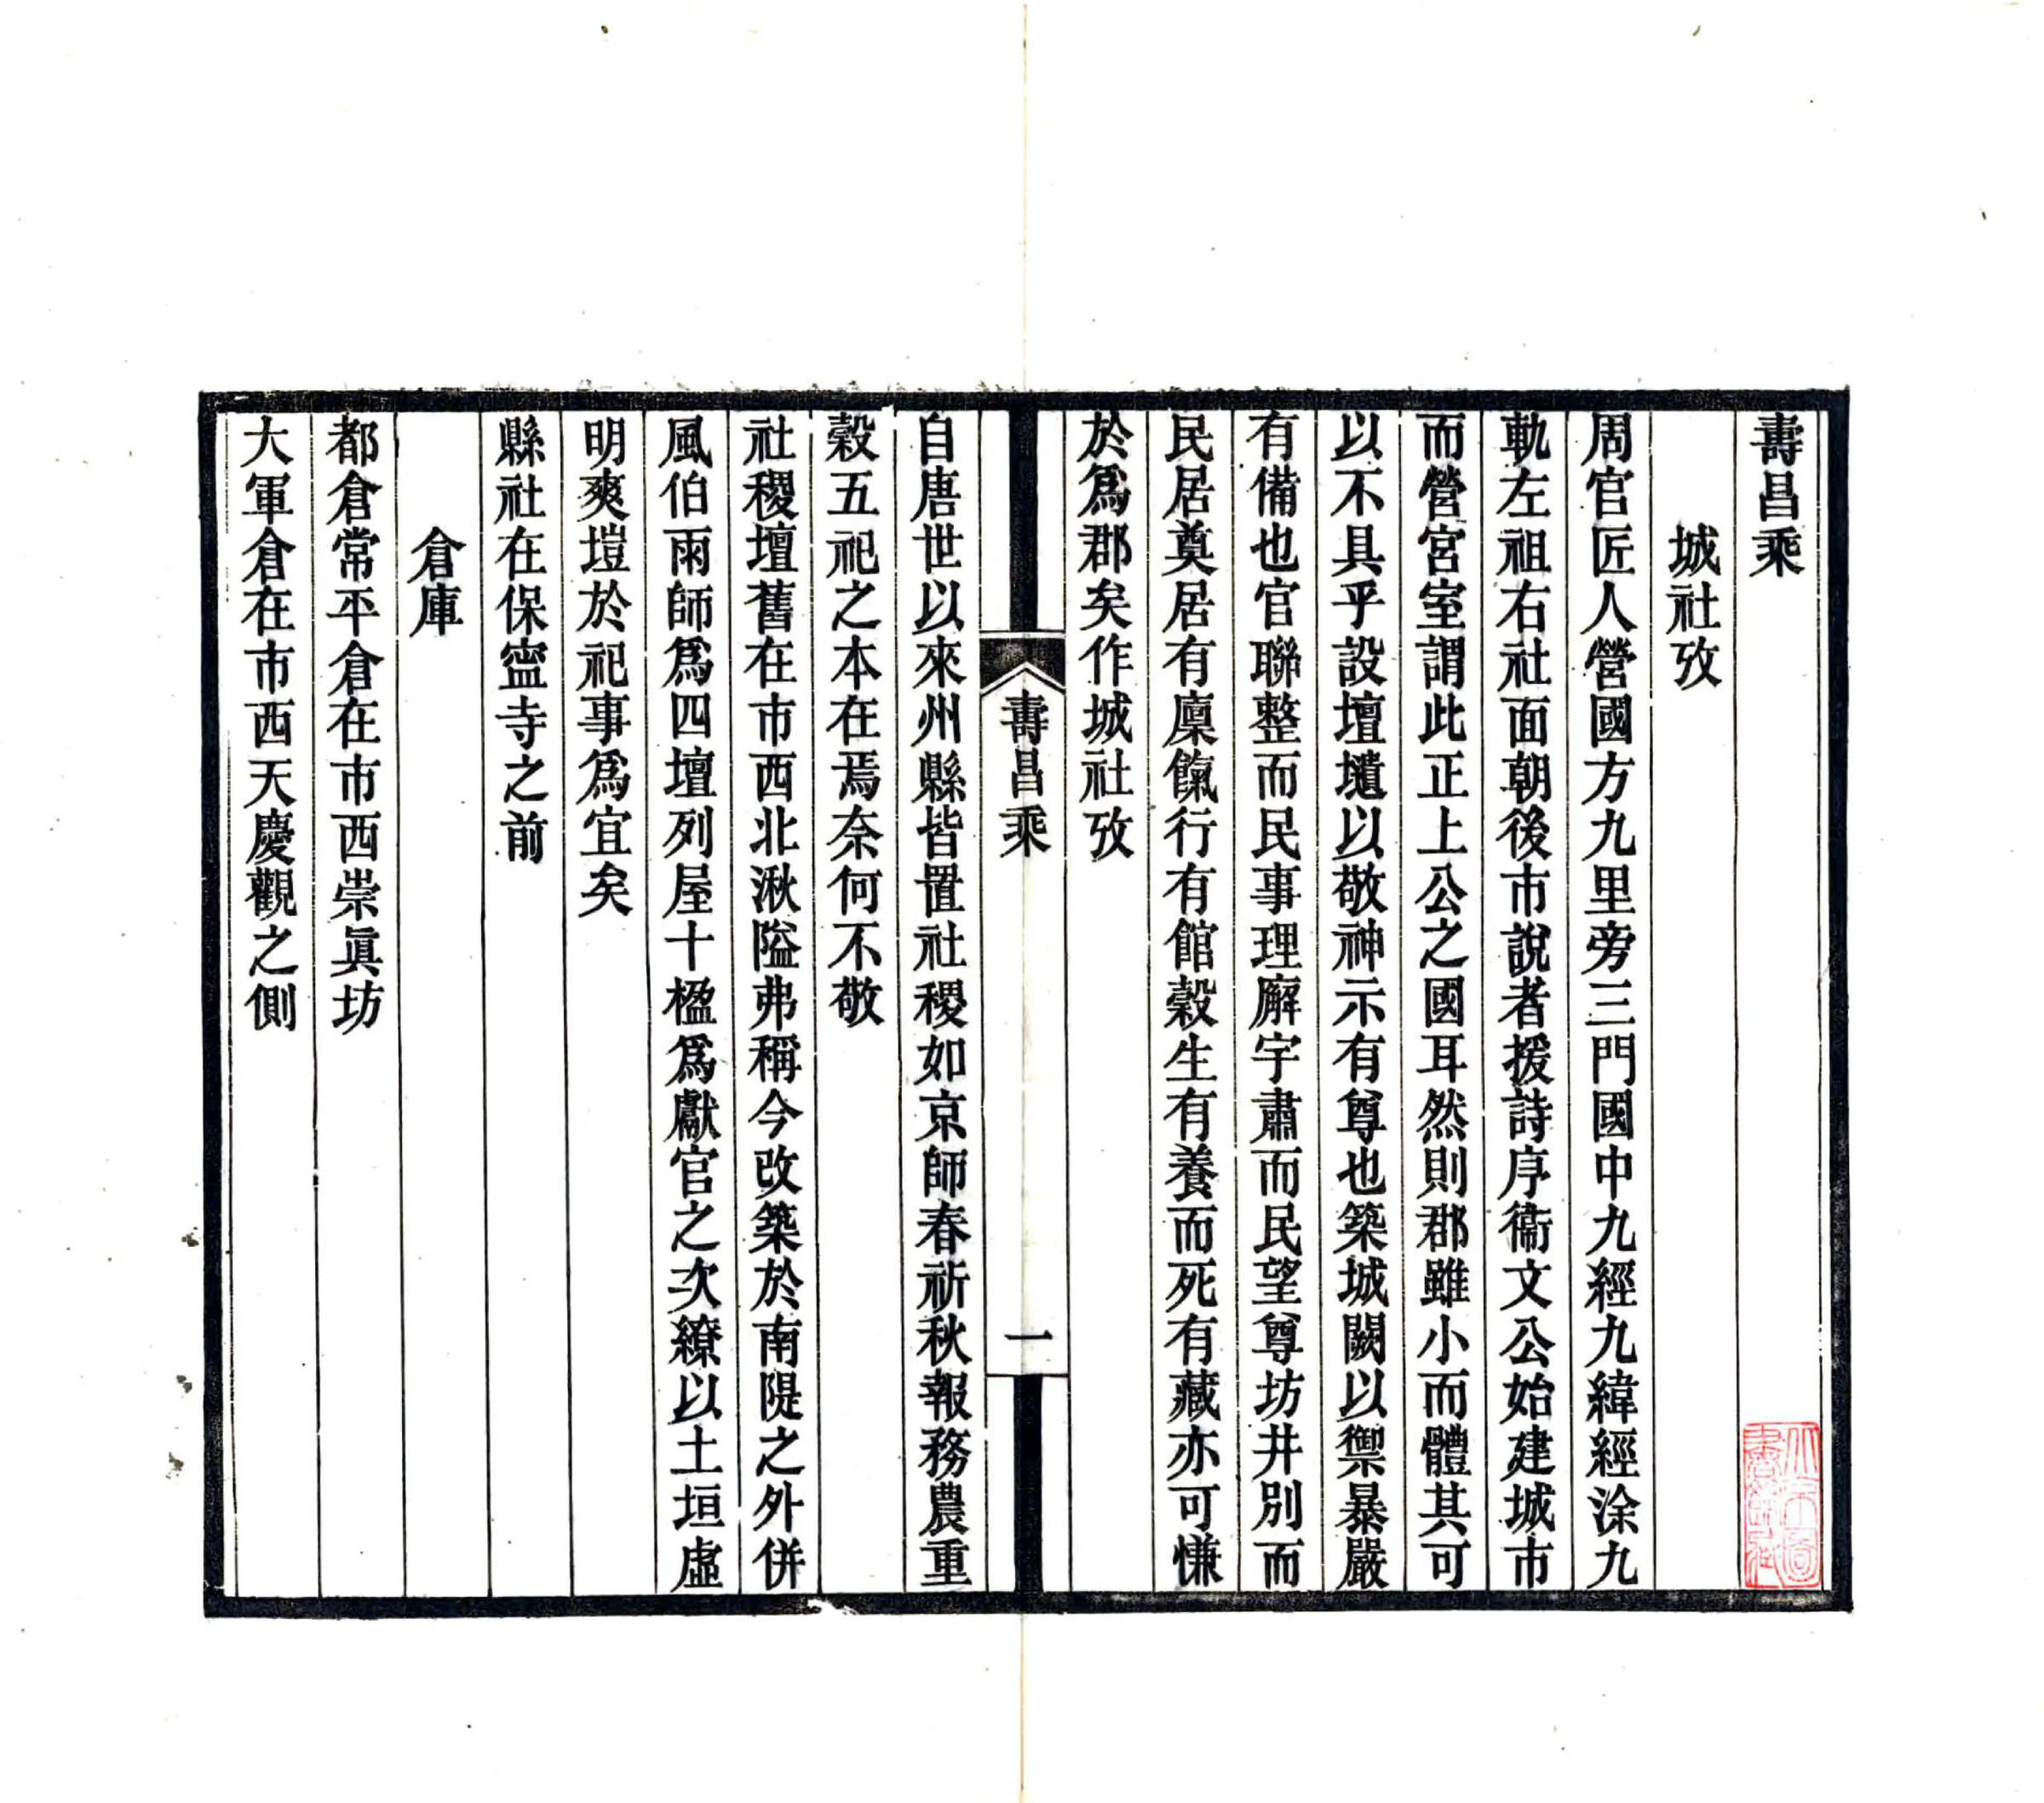 壽昌乘
城社攷
周官匠人營國方九里旁三門國中九經九緯經涂九
軌左祖右社面朝後市說者援詩序衞文公始建城市
而營宮室謂此正上公之國耳然則郡雖小而體其可
以不具乎設壇壝以敬神示有尊也築城闕以禦暴嚴
有備也官聯整而民事理廨宇肅而民望尊坊井別而
民居奠居有廩餼行有館穀生有養而死有藏亦可慊
於爲郡矣作城社攷
壽昌乘
一
自唐世以來州縣皆置社稷如京師春祈秋報務農重
穀五祀之本在焉奈何不敬
社稷壇舊在市西北湫隘弗稱今改築於南隄之外併
風伯雨師爲四壇列屋十楹爲獻官之次繚以土垣虛
明爽塏於祀事爲宜矣
縣社在保寍寺之前
倉庫
都倉常平倉在市西崇眞坊
大軍倉在市西天慶觀之側